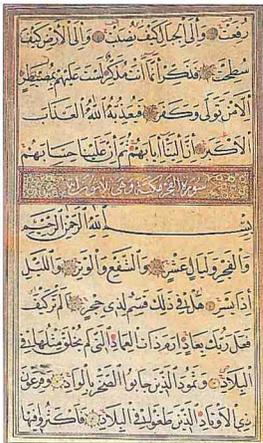 رُفِعَتْ وَإِلَى الْجِبَالِ كَيْفَ نُصِبَتْ وَإِلَى الْأَرْضِ كَيْفَ
سُطِحَتْ فَذَكِّرْ إِنَّمَا أَنْتَ مُذَكِّرٌ لَسْتَ عَلَيْهِمْ بِمُصَيْطِرٍ
إِلَّا مَنْ تَوَلَّى وَكَفَرَ فَيُعَذِّبُهُ اللَّهُ الْعَذَابَ
الْأَكْبَرَ إِنَّ إِلَيْنَا إِيَابَهُمْ ثُمَّ إِنَّ عَلَيْنَا حِسَابَهُمْ
سورة الفجر مكية وهي ثلاثون آية
بِسْمِ اللَّهِ الرَّحْمَنِ الرَّحِيمِ
وَالْفَجْرِ وَلَيَالٍ عَشْرٍ وَالشَّفْعِ وَالْوَتْرِ وَاللَّيْلِ
إِذَا يَسْرِ هَلْ فِي ذَلِكَ قَسَمٌ لِذِي حِجْرٍ أَلَمْ تَرَ كَيْفَ
فَعَلَ رَبُّكَ بِعَادٍ إِرَمَ ذَاتِ الْعِمَادِ الَّتِي لَمْ يُخْلَقْ مِثْلُهَا فِي
الْبِلَادِ وَثَمُودَ الَّذِينَ جَابُوا الصَّخْرَ بِالْوَادِ وَفِرْعَوْنَ
ذِي الْأَوْتَادِ الَّذِينَ طَغَوْا فِي الْبِلَادِ فَأَكْثَرُوا فِيهَا